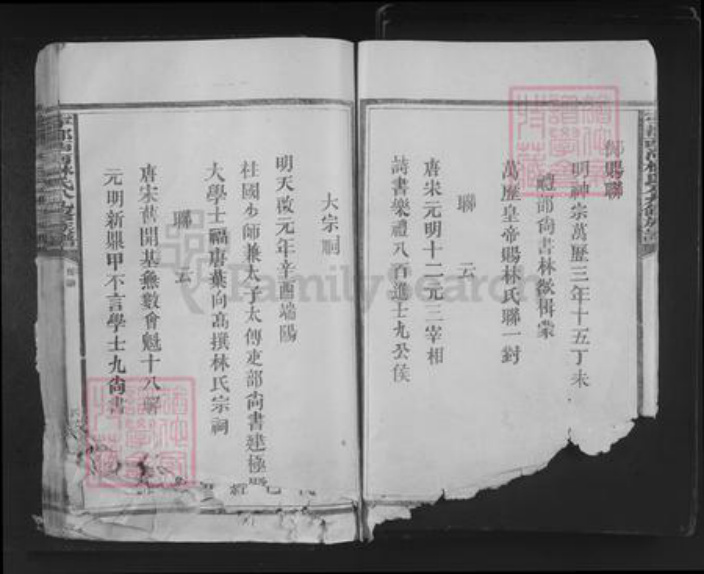 御賜聯
明神宗萬歷三年十五丁未
禮部尚書林欲楫蒙
萬歷皇帝賜林氏聯一對
聯 云
唐宋元明十二元三宰相
詩書樂禮八百進士九公侯
大宗祠
明天啟元年辛酉端陽
柱國少師兼太子太傅吏部尚書建極殿
大學士福唐葉向高撰林氏宗祠
聯 云
唐宋舊開基無數會魁十八解
元明新鼎甲不言學士九尚書
FamilySearch